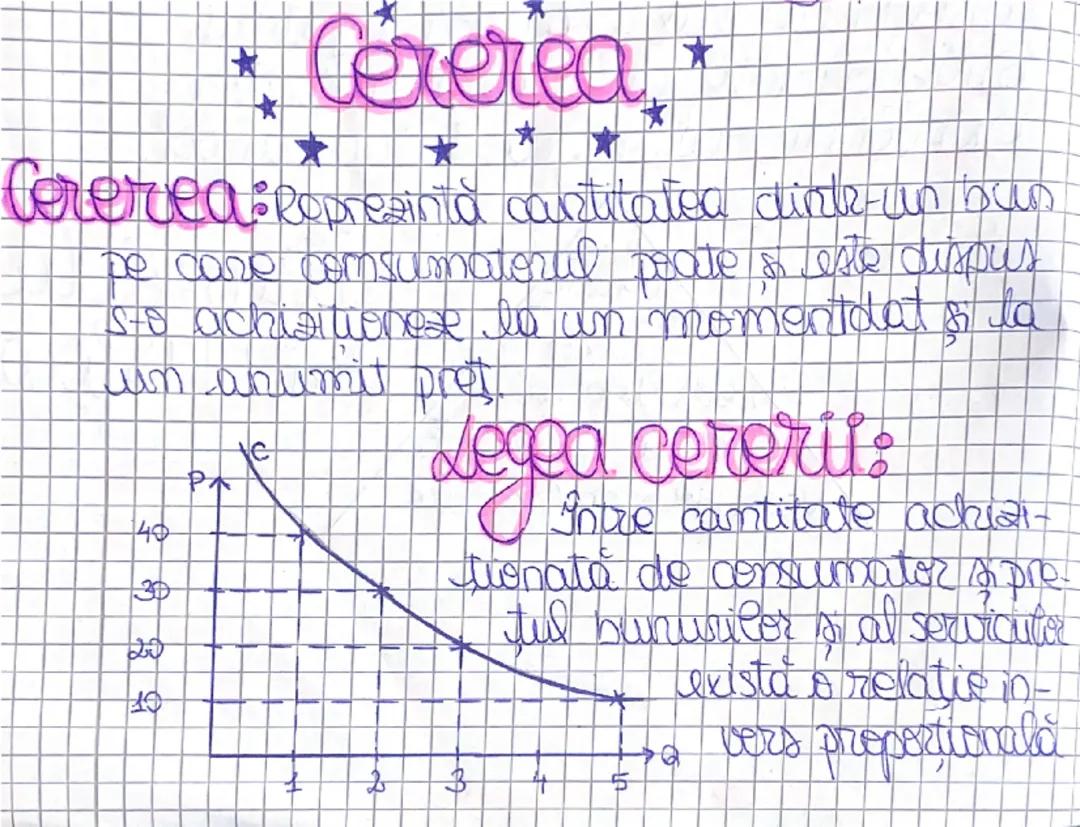 Cererea
Cererea: Reprezintă cantitatea dintr-un bun
pe care consumatorul poate și este dispus
s-o achiziționeze la un momentdat și la
un anumit preț.
Legea cererii:
Între cantitate achizi-
ționată de consumator și pre-
țul bunurilor și al serviciilor
există o relație in-
vers proporțională
C
P
40
30
20
10
1 2 3 4 5 Q